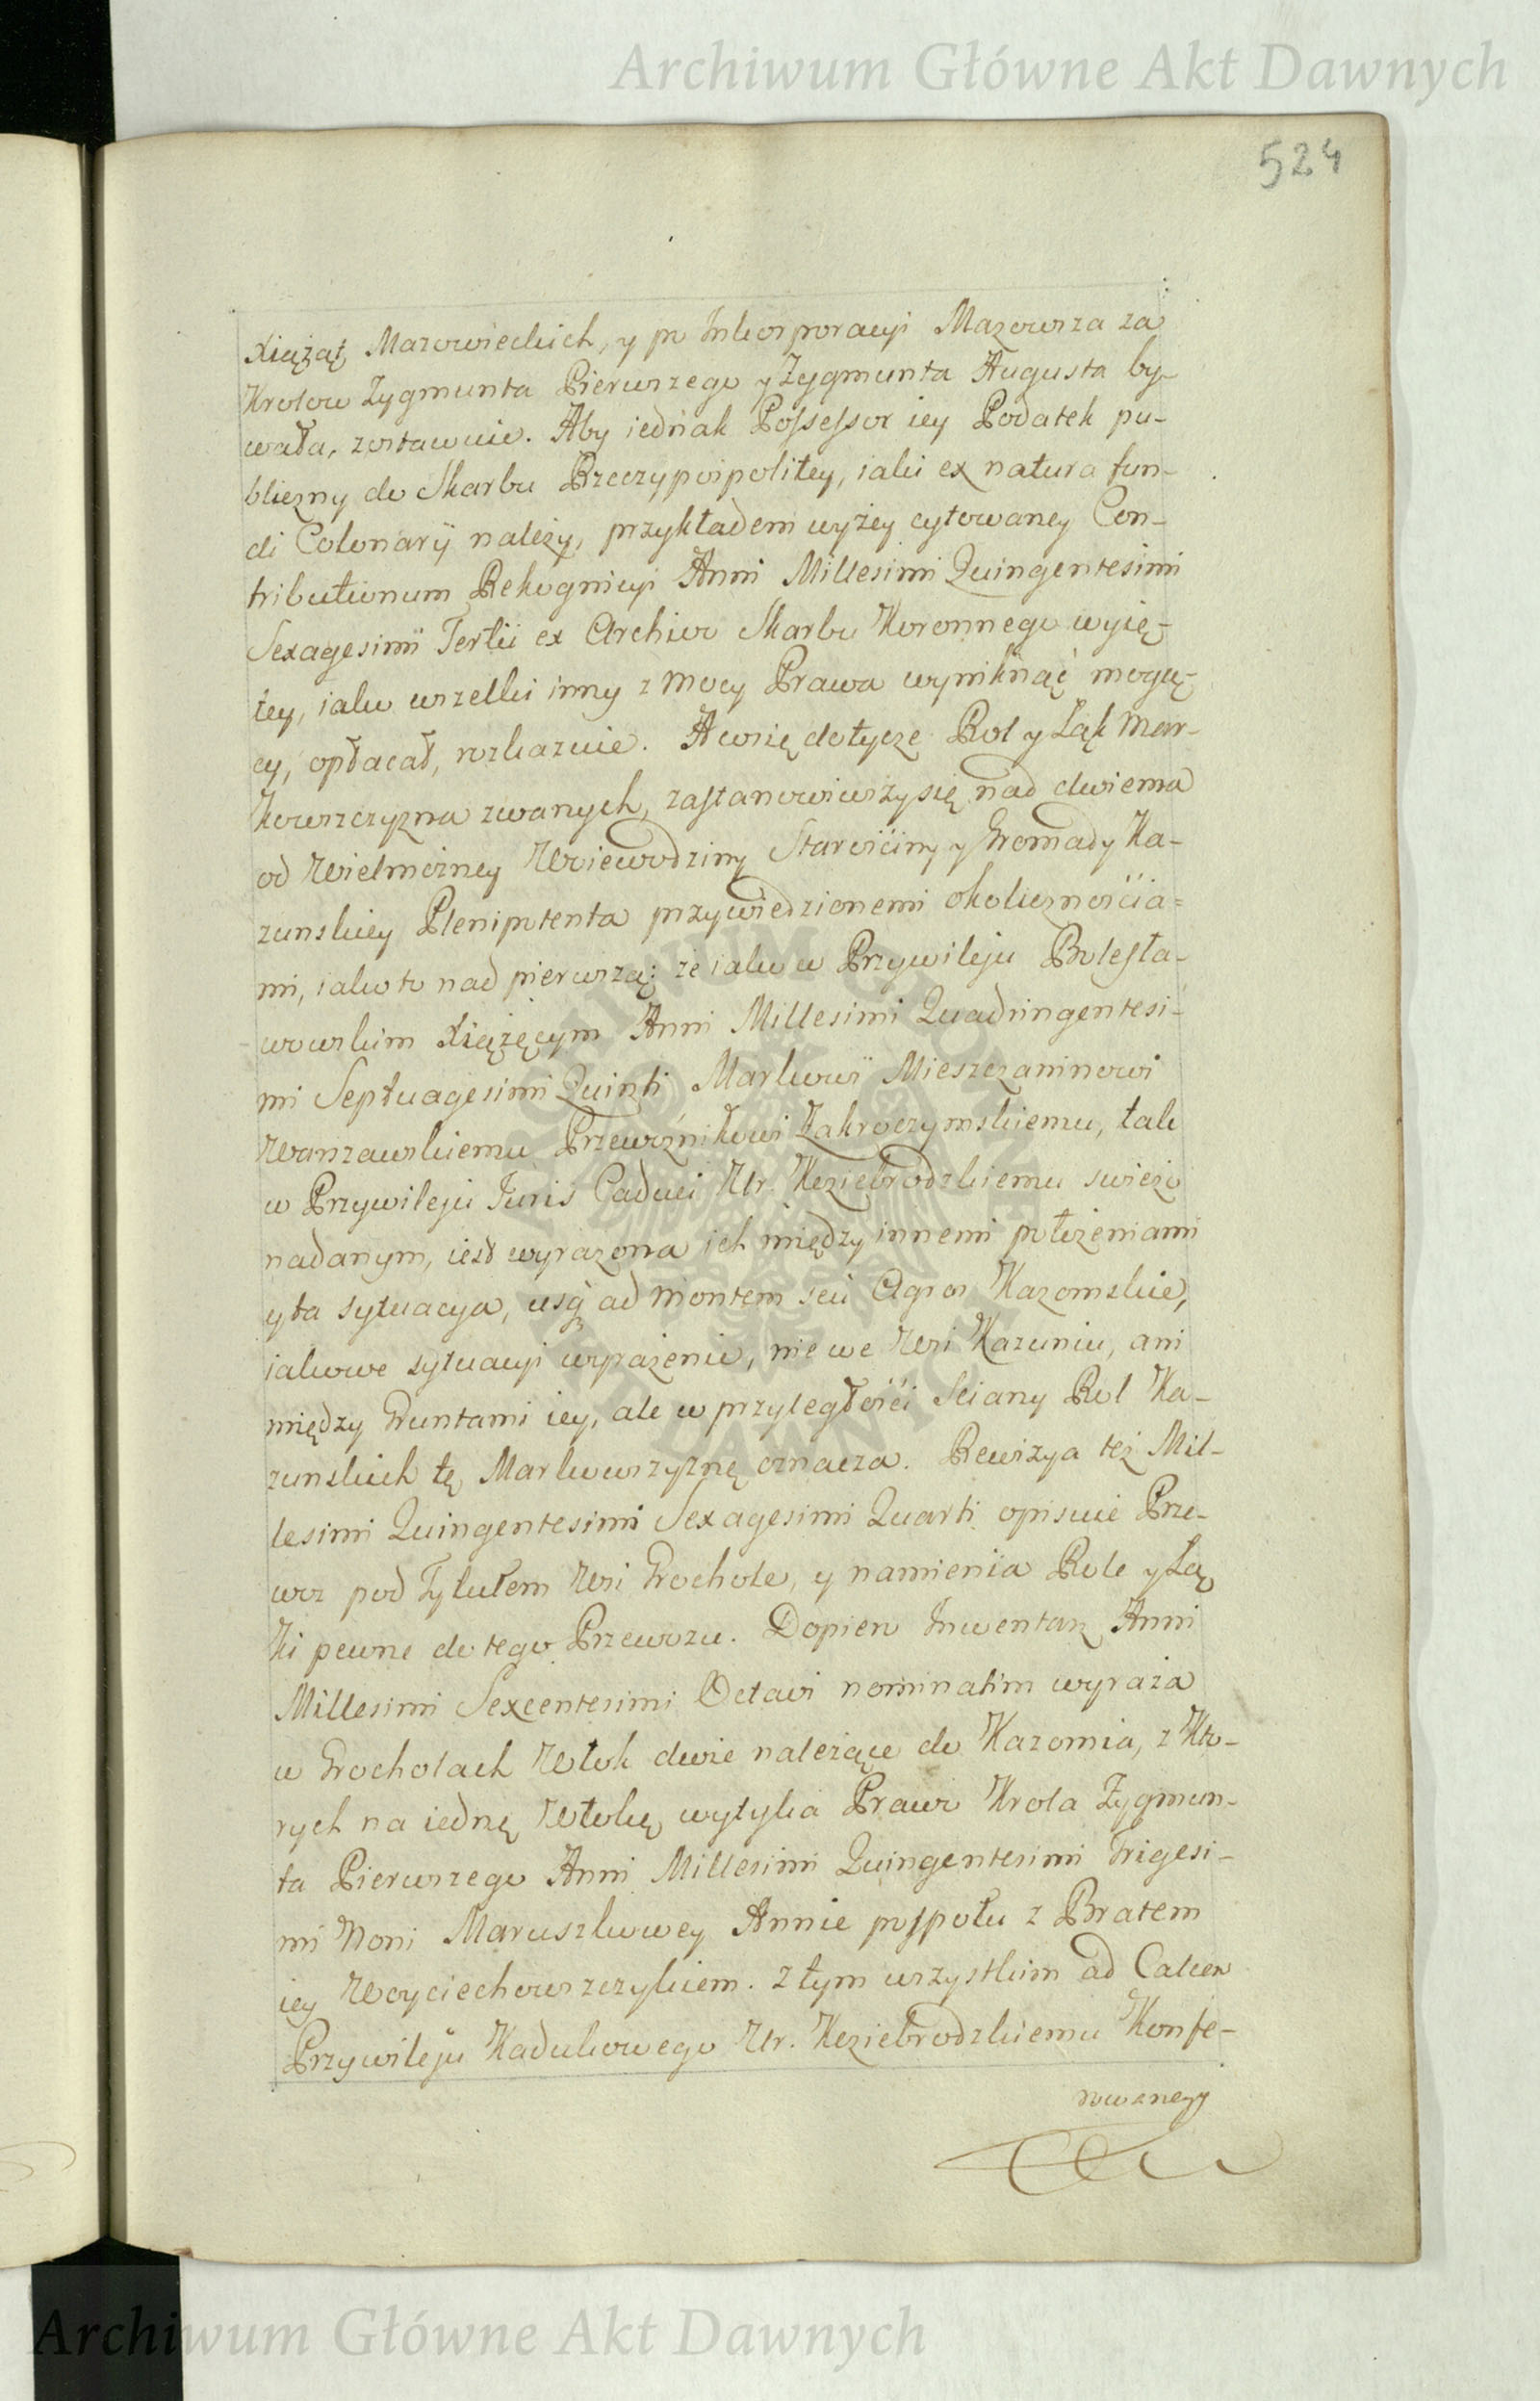 Archiwum Główne Akt Dawnych
524
Xiążąt Mazowieckich, y po Inkorporacyi Mazowsza za
Krolow Zygmunta Pierwszego y Zygmunta Augusta by-
wała, zostawuie. Aby iednak Possessor iey Podatek pu-
bliczny do Skarbu Rzeczypospolitey, iaki ex natura fun-
di Colonarÿ należy, przykładem wyżey cytowaney Con-
tributionum Rekognicyi Anni Millesimi Quingentesimi
Sexagesimi Tertii ex Archivo Skarbu Koronnego wyię-
tey, iako wszelki inny z mocy Prawa wyniknąć mogą-
cy, opłacał, rozkazuie. A co się dotycze Rol y Łąk Mar-
kowszczyzna zwanych, zastanowiwszy się nad dwiema
od Wielmożney Woiewodziny Starościny y Gromady Ka-
zunskiey Plenipotenta przywiedzionemi okolicznościa-
mi, iako to nad pierwszą; że iako w Przywileju Bolesła-
wowskim Xiążęcym Anni Millesimi Quadringentesi-
mi Septuagesimi Quinti Markowi Mieszczaninowi
Warszawskiemu Przewoźnikowi Zakroczymskiemu, tak
w Przywileju Juris Caduci Ur. Keziebrodzkiemu swieżo
nadanym, iest wyrazona ich między innemi położeniami
y ta sytuacya, usq ad montem seu Agros Kazomskie,
iakowe sytuacyi wyrażenie, nie we Wsi Kazuniu, ani
między Gruntami iey, ale w przyległości Sciany Rol Ka-
zunskich tę Markowszyznę oznacza. Rewizya też Mil-
lesimi Quingentesimi Sexagesimi Quarti opisuie Prze-
woz pod Tytułem Wsi Grochole, y namienia Role y Łą
ki pewne do tego Przewozu. Dopiero Inwentarz Anni
Millesimi Sexcentesimi Octavi nominatim wyraża
w Grocholach Włok dwie należące do Kazomia, z Kto-
rych na iednę Włokę wytyka Prawo Krola Zygmun-
ta Pierwszego Anni Millesimi Quingentesimi Trigesi-
mi Noni Maruszkowey Annie pospołu z Bratem
iey Woyciechowszczykiem. Z tym wszystkim ad Calcem
Przywileju Kadukowego Ur. Keziebrodzkiemu Konfe-
rowanego
ARCHIWUM GŁÓWNE AKT DAWNYCH
Archiwum Główne Akt Dawnych